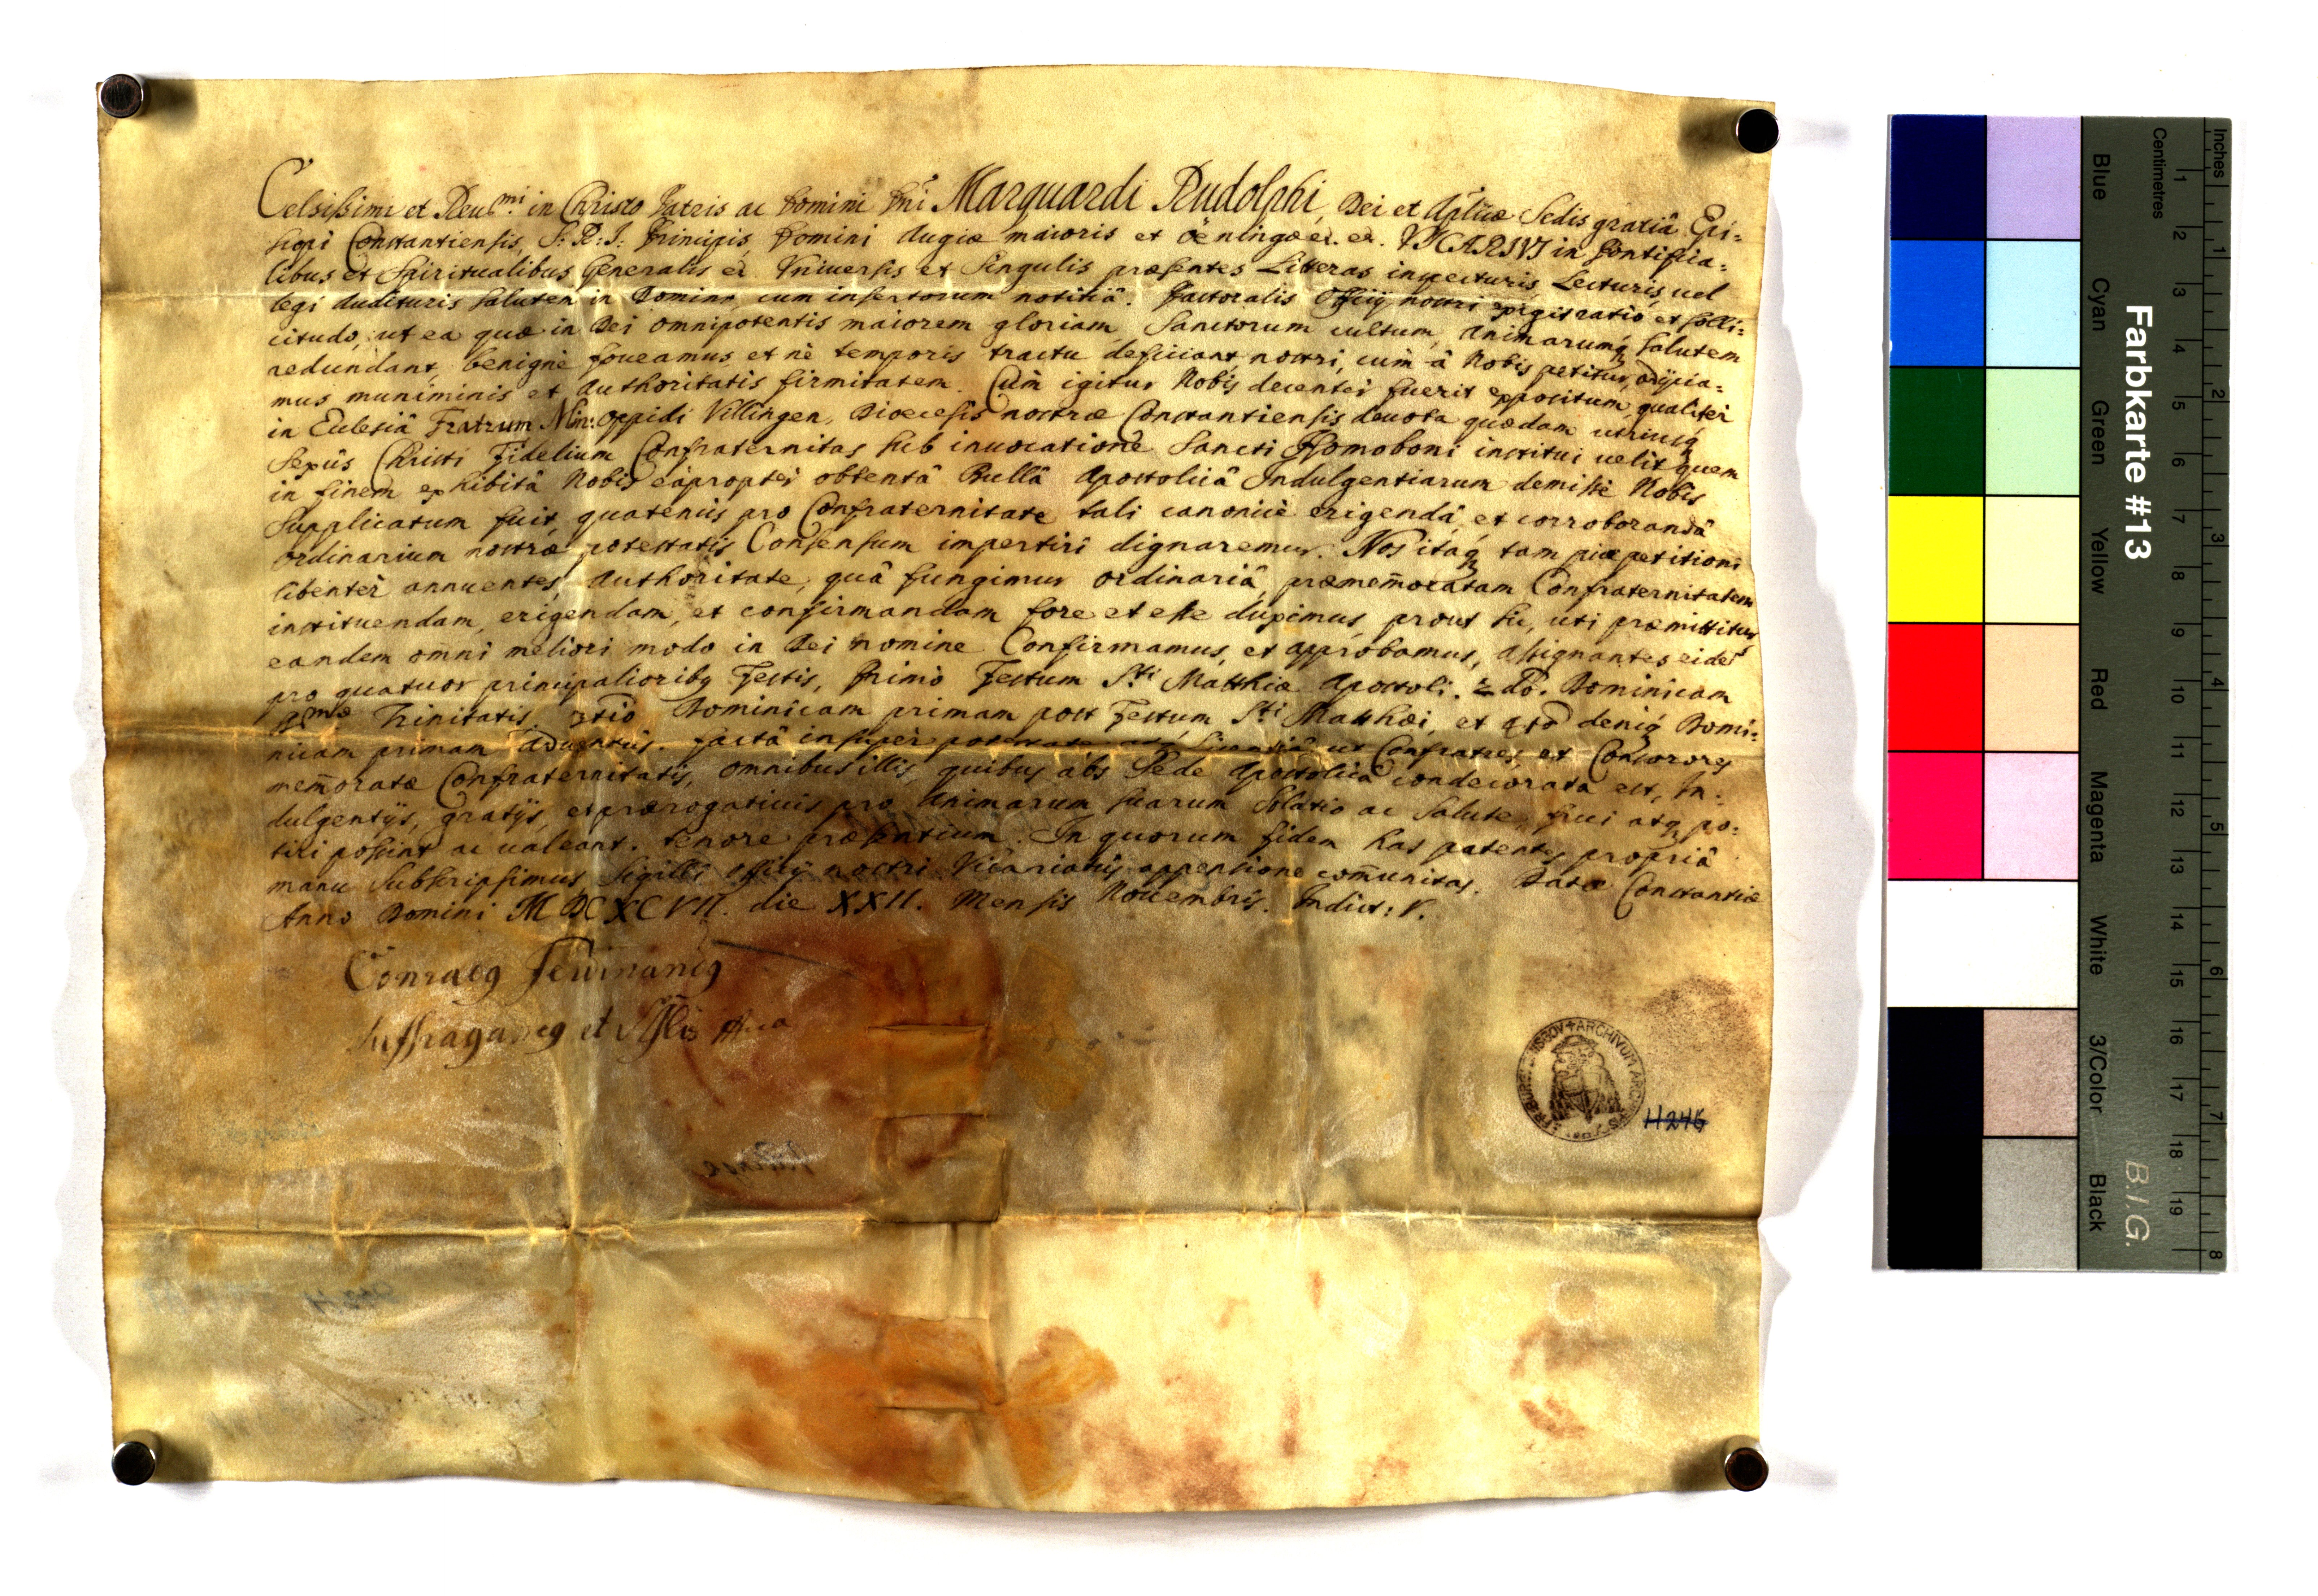 Celsissimi et Reu.mi in Christo Patris ac Domini Dni Marquardi Rudolphi, Dei et Apłicæ Sedis gratiâ Epi=
scopi Constantiensis, S: R: I: Principis, Domini Augiæ maioris et Öeningæ et. et. VICARIVS in Pontifica=
libus et Spiritualibus Generalis et Vniuersis et Singulis præsentes Litteras inspecturis, Lecturis, uel
legi Audituris Salutem in Domino, cum insertorum notitiâ. Pastoralis Officij nostri exigit ratio et solli=
citudo, ut ea quæ in Dei omnipotentis maiorem gloriam, Sanctorum cultum, Animarumq Salutem
redundant, benignè foueamus, et nè temporis tractu deficiant, nostri, cùm â Nobis petitur, adijcia=
mus muniminis et Authoritatis firmitatem. Cùm igitur Nobis decenter fuerit expositum, qualiter
in Eclesiâ Fratrum Min: oppidi Villingen, Dioecesis nostræ Constantiensis deuota quædam utriusq
Sexûs Christi Fidelium Confraternitas sub inuocatione Sancti Homoboni institui uelit, quem
in finem exhibitâ Nobis eapropter obtentâ Bullâ Apostolicâ Indulgentiarum demissè Nobis
Supplicatum fuit, quatenùs pro Confraternitate tali canonicè erigendâ, et corroborandâ
Ordinarium nostræ potestatis Consensum impertiri dignaremur. Nos itaq tam piæ petitioni
libenter annuentes, Authoritate, quâ fungimur Ordinariâ, præmemoratam Confraternitatem
instituendam, erigendam, et confirmandam fore et esse duximus, prout hu, uti præmittitur
eandem omni meliori modo in Dei nomine Confirmamus, et approbamus, assignantes eidem
pro quatuor principalioribq Festis, Primò Festum S.ti Matthiæ Apostoli. 2do. Dominicam
S.mæ Trinitatis. 3tiò Dominicam primam post Festum S.ti Matthæi, et 4tò deniq Domi=
nicam primam Aduentûs. factâ insuper potestate ac licentiâ ut Confratres, et Consorores
memoratæ Confraternitatis, omnibus illis, quibus abs Sede Apostolicâ condecorata est, In=
dulgentijs, gratijs, et prærogatiuis pro Animarum suarum Solatio ac Salute, frui atq po=
tiri possint ac ualeant. tenore præsentium. In quorum fidem has patentes propriâ
manu Subscripsimus, Sigilli officij nostri Vicariatûs appensione comunitas. Datæ Constantiæ
Anno Domini MDCXCVII. die XXII. Mensis Nouembris. Indict: V.
Conradq Ferdinandq
Suffraganeq et
ARCHIVUM ARCHIEPISCOPI FRIBURGENSIS
H246
Farbkarte #13
B.I.G.
Blue Cyan Green Yellow Red Magenta White 3/Color Black
Centimetres 1 2 3 4 5 6 7 8 9 10 11 12 13 14 15 16 17 18 19
Inches 1 2 3 4 5 6 7 8